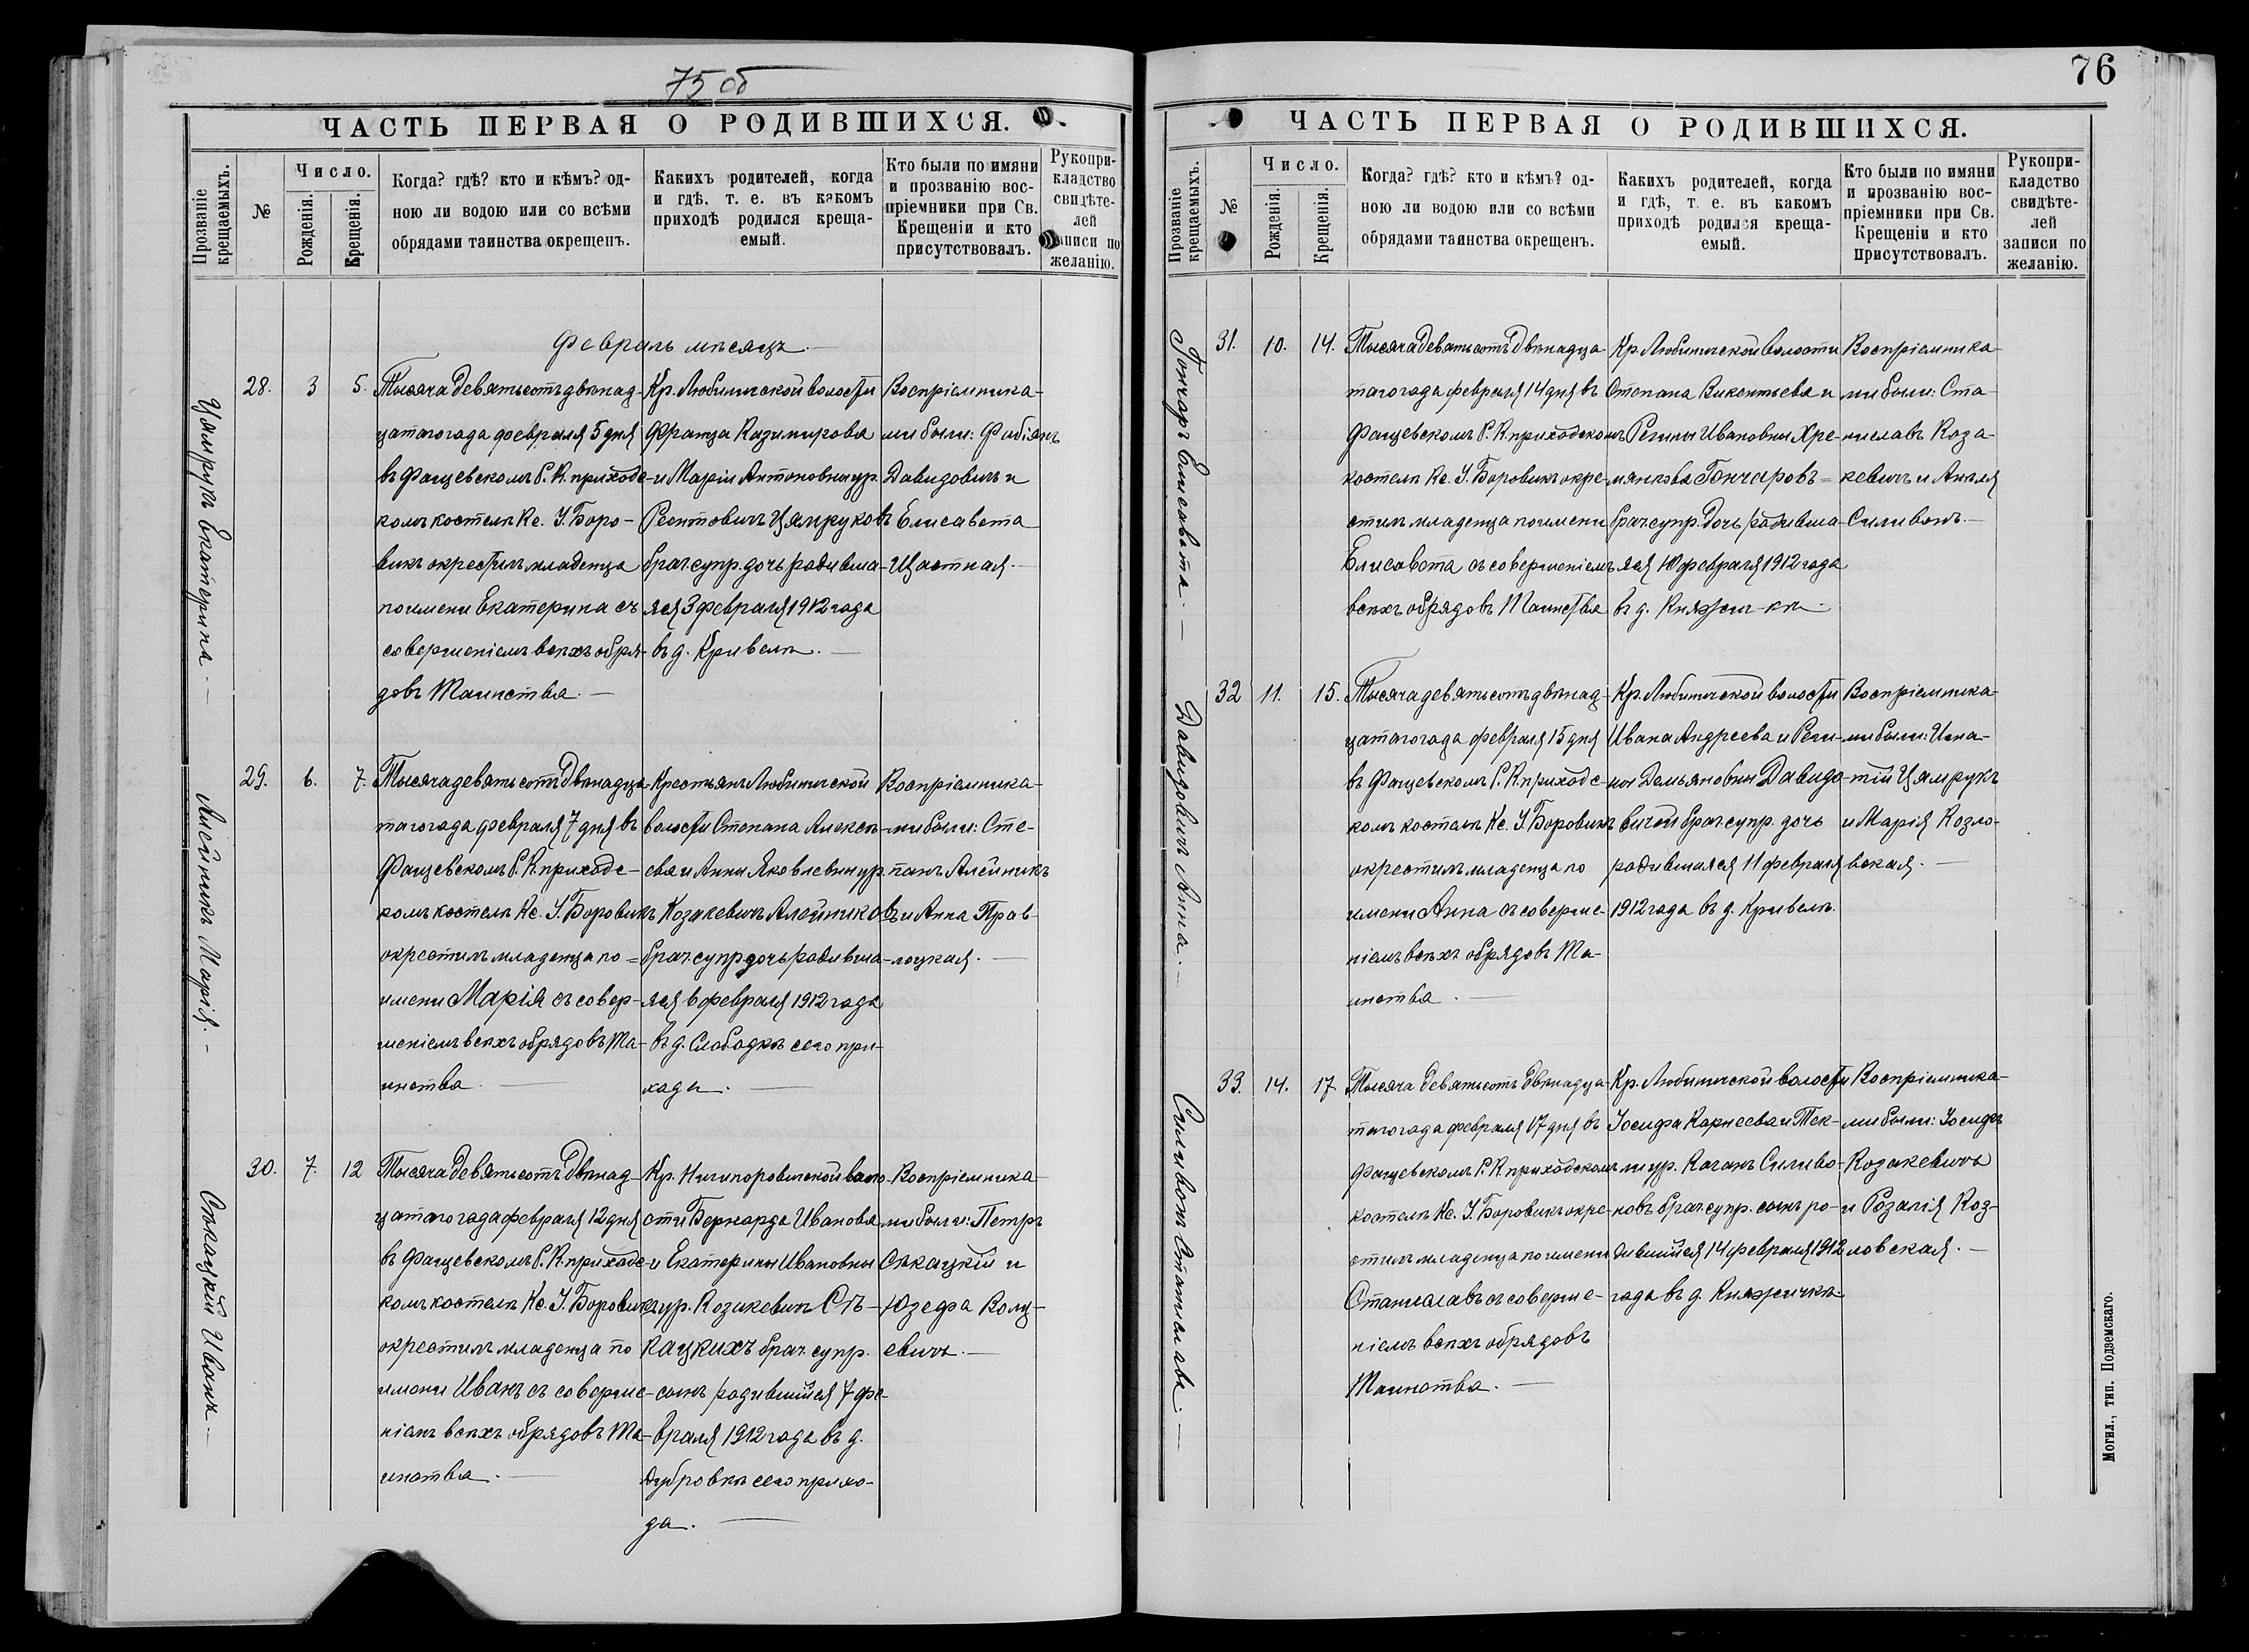 75 об
ЧАСТЬ ПЕРВАЯ О РОДИВШИХСЯ.
Прозваніе крещаемыхъ.
№
Число.
Рожденія.
Крещенія.
Когда? гдѣ? кто и кѣмъ? од-
ною ли водою или со всѣми
обрядами таинства окрещенъ.
Какихъ родителей, когда
и гдѣ, т. е. въ какомъ
приходѣ родился креща-
емый.
Кто были по имяни
и прозванію вос-
пріемники при Св.
Крещеніи и кто
присутствовалъ.
Рукопри-
кладство
свидѣте-
лей
записи по
желанію.
Февраль мѣсяцъ.
Цямрукъ Екатерина.
28.
3
5.
Тысяча девятьсотъ двѣнад-
цатаго года февраля 5 дня
въ Фащевскомъ Р. К. приходс-
комъ костелѣ Кс. У. Боро-
викъ окрестилъ младенца
по имени Екатерина съ
совершеніемъ всѣхъ обря-
довъ Таинства.
Кр. Любиничской волости
Франца Казимирова
и Маріи Антоновны ур.
Реентовичъ Цямруковъ
брач. супр. дочь родивша-
яся 3 февраля 1912 года
въ д. Кривель.
Воспріемника-
ми были: Фабіянъ
Давидовичъ и
Елисавета
Щастная.
Алейникъ Марія.
29.
6.
7.
Тысяча девятьсотъ Двѣнадца-
таго года февраля 7 дня въ
Фащевскомъ Р. К. приходс-
комъ костелѣ Кс. У. Боровикъ
окрестилъ младенца по =
имени Марія съ совер-
шеніемъ всѣхъ обрядовъ Та-
инства.
Крестьянъ Любиничской
волости Степана Алексѣ-
ева и Анны Яковлевны ур.
Козакевичъ Алейниковъ
брач. супр. дочь родивша-
яся 6 февраля 1912 года
въ д. Слободкѣ сего при-
хода.
Воспріемника-
ми были: Сте-
панъ Алейникъ
и Анна Прав-
лоцкая.
Сѣкацкій Иванъ.
30.
7.
12
Тысяча Девятьсотъ Двѣнад-
цатаго года февраля 12 дня
въ Фащевскомъ Р. К. приходс-
комъ костелѣ Кс. У. Боровикъ
окрестилъ младенца по
имени Иванъ съ соверше-
ніемъ всѣхъ обрядовъ Та-
инства.
Кр. Ничипоровичской воло-
сти Бернарда Иванова
и Екатерины Ивановны
ур. Козакевичъ Сѣ-
кацкихъ брач. супр.
сынъ родившійся 7 фе-
враля 1912 года въ д.
Дубровкѣ сего прихо-
да.
Воспріемника-
ми были: Петръ
Сѣкацкій и
Юзефа Волц-
евичъ.
76
ЧАСТЬ ПЕРВАЯ О РОДИВШИХСЯ.
Прозваніе крещаемыхъ.
№
Число.
Рожденія.
Крещенія.
Когда? гдѣ? кто и кѣмъ? од-
ною ли водою или со всѣми
обрядами таинства окрещенъ.
Какихъ родителей, когда
и гдѣ, т. е. въ какомъ
приходѣ родился креща-
емый.
Кто были по имяни
и прозванію вос-
пріемники при Св.
Крещеніи и кто
присутствовалъ.
Рукопри-
кладство
свидѣте-
лей
записи по
желанію.
Гончаръ Елисавета.
31.
10.
14.
Тысяча Девятьсотъ Двѣнадца-
таго года февраля 14 дня въ
Фащевскомъ Р. К. приходскомъ
костелѣ Кс. У. Боровикъ окре-
стилъ младенца по имени
Елисавета съ совершеніемъ
всѣхъ обрядовъ Таинства
Кр. Любиничской волости
Степана Викентьева и
Регины Ивановны Хре-
мянкова Гончаровъ =
брач. супр. Дочь родивша-
яся 10 февраля 1912 года
въ д. Княжич-кѣ.
Воспріемника-
ми были: Ста-
ниславъ Коза-
кевичъ и Анеля
Силивонъ.
Давидовичъ Анна.
32
11.
15.
Тысяча девятьсотъ двѣнад-
цатаго года февраля 15 дня
въ Фащевскомъ Р. К. приходс-
комъ костелѣ Кс. У. Боровикъ
окрестилъ младенца по
имени Анна съ соверше-
ніемъ всѣхъ обрядовъ Та-
инства.
Кр. Любиничской волости
Ивана Андреева и Реги-
ны Демьяновны Давидо-
вичей брач. супр. дочь
родившаяся 11 февраля
1912 года въ д. Кривель.
Воспріемника-
ми были: Игна-
тій Цямрукъ
и Марія Козло-
вская.
Силивонъ Станиславъ.
33.
14.
17.
Тысяча Девятьсотъ Двѣнадца-
таго года февраля 17 дня въ
Фащевскомъ Р. К. приходскомъ
костелѣ Кс. У. Боровикъ окре-
стилъ младенца по имени
Станиславъ съ соверше-
ніемъ всѣхъ обрядовъ
Таинства.
Кр. Любиничской волости
Іосифа Карнеева и Тек-
ли ур. Каганъ Силиво-
новъ брач. супр. сынъ ро-
дившійся 14 февраля 1912
года въ д. Княжичкѣ
Воспріемника-
ми были: Іосифъ
Козакевичъ
и Розалія Коз-
ловская.
Могил., тип. Подземскаго.